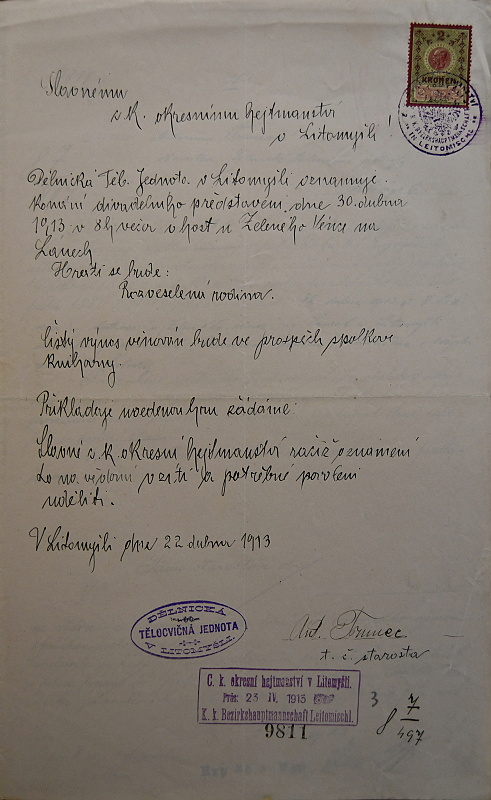 2
KRONEN
K.K. BEZIRKSHAUPTMANNSCHAFT
IN LEITOMISCHL
Slavnému
c. k. okresnímu hejtmanství
v Litomyšli!
Dělnická Těl. Jednota v Litomyšli oznamuje
konání divadelního představení dne 30. dubna
1913 v 8h večer v host u Zeleného Věnce na
Lánech
Hráti se bude:
Rozveselená rodina.
Čistý výnos věnován bude ve prospěch spolkové
knihovny.
Přikládaje uvedenou hru žádáme:
Slavné c. k. okresní hejtmanství račiž oznámení
to na vědomí vzíti a potřebné povolení
uděliti.
V Litomyšli dne 22 dubna 1913
DĚLNICKÁ
TĚLOCVIČNÁ JEDNOTA
V LITOMYŠLI.
Ant.
t. č. starosta
C. k. okresní hejtmanství v Litomyšli.
Präs. 23 IV. 1913
K. k. Bezirkshauptmannschaft Leitomischl.
9811
3
8 7
497